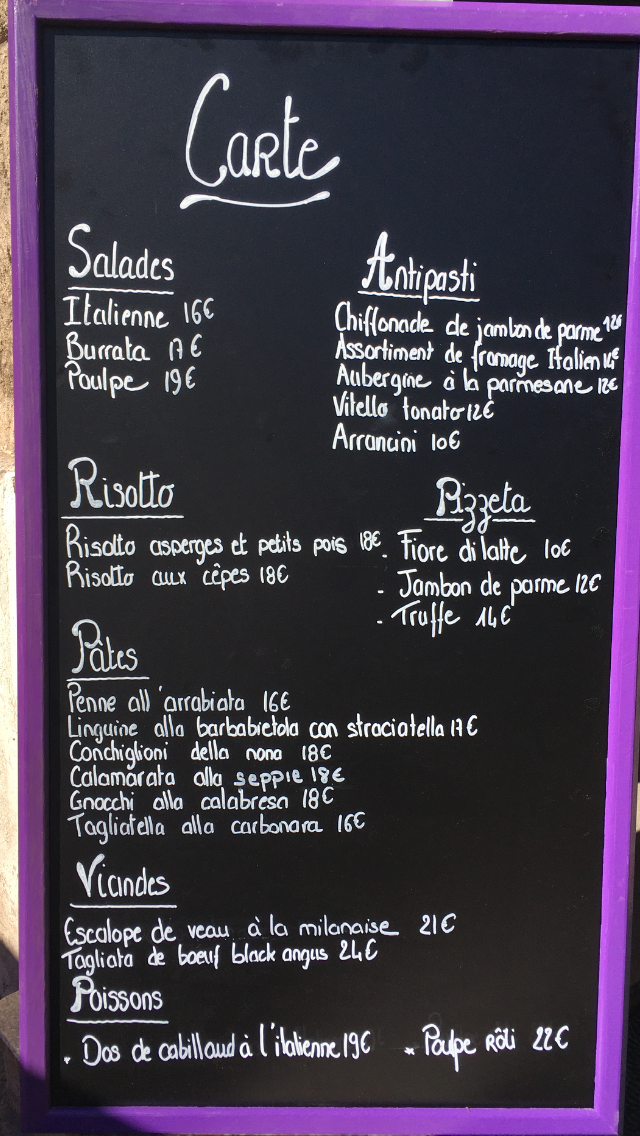 Carte
Salades
Italienne 16€
Burrata 17€
Poulpe 19€
Antipasti
Chiffonade de jambon de parme 12€
Assortiment de fromage Italien 14€
Aubergine à la parmesane 12€
Vitello tonato 12€
Arrancini 10€
Risotto
Risotto asperges et petits pois 18€
Risotto aux cêpes 18€
Pizzeta
- Fiore di latte 10€
- Jambon de parme 12€
- Truffe 14€
Pâtes
Penne all'arrabiata 16€
Linguine alla barbabietola con straciatella 17€
Conchiglioni della nona 18€
Calamarata alla seppie 18€
Gnocchi alla calabresa 18€
Tagliatella alla carbonara 16€
Viandes
Escalope de veau à la milanaise 21€
Tagliata de boeuf black angus 24€
Poissons
- Dos de cabillaud à l'italienne 19€ - Poulpe Rôti 22€